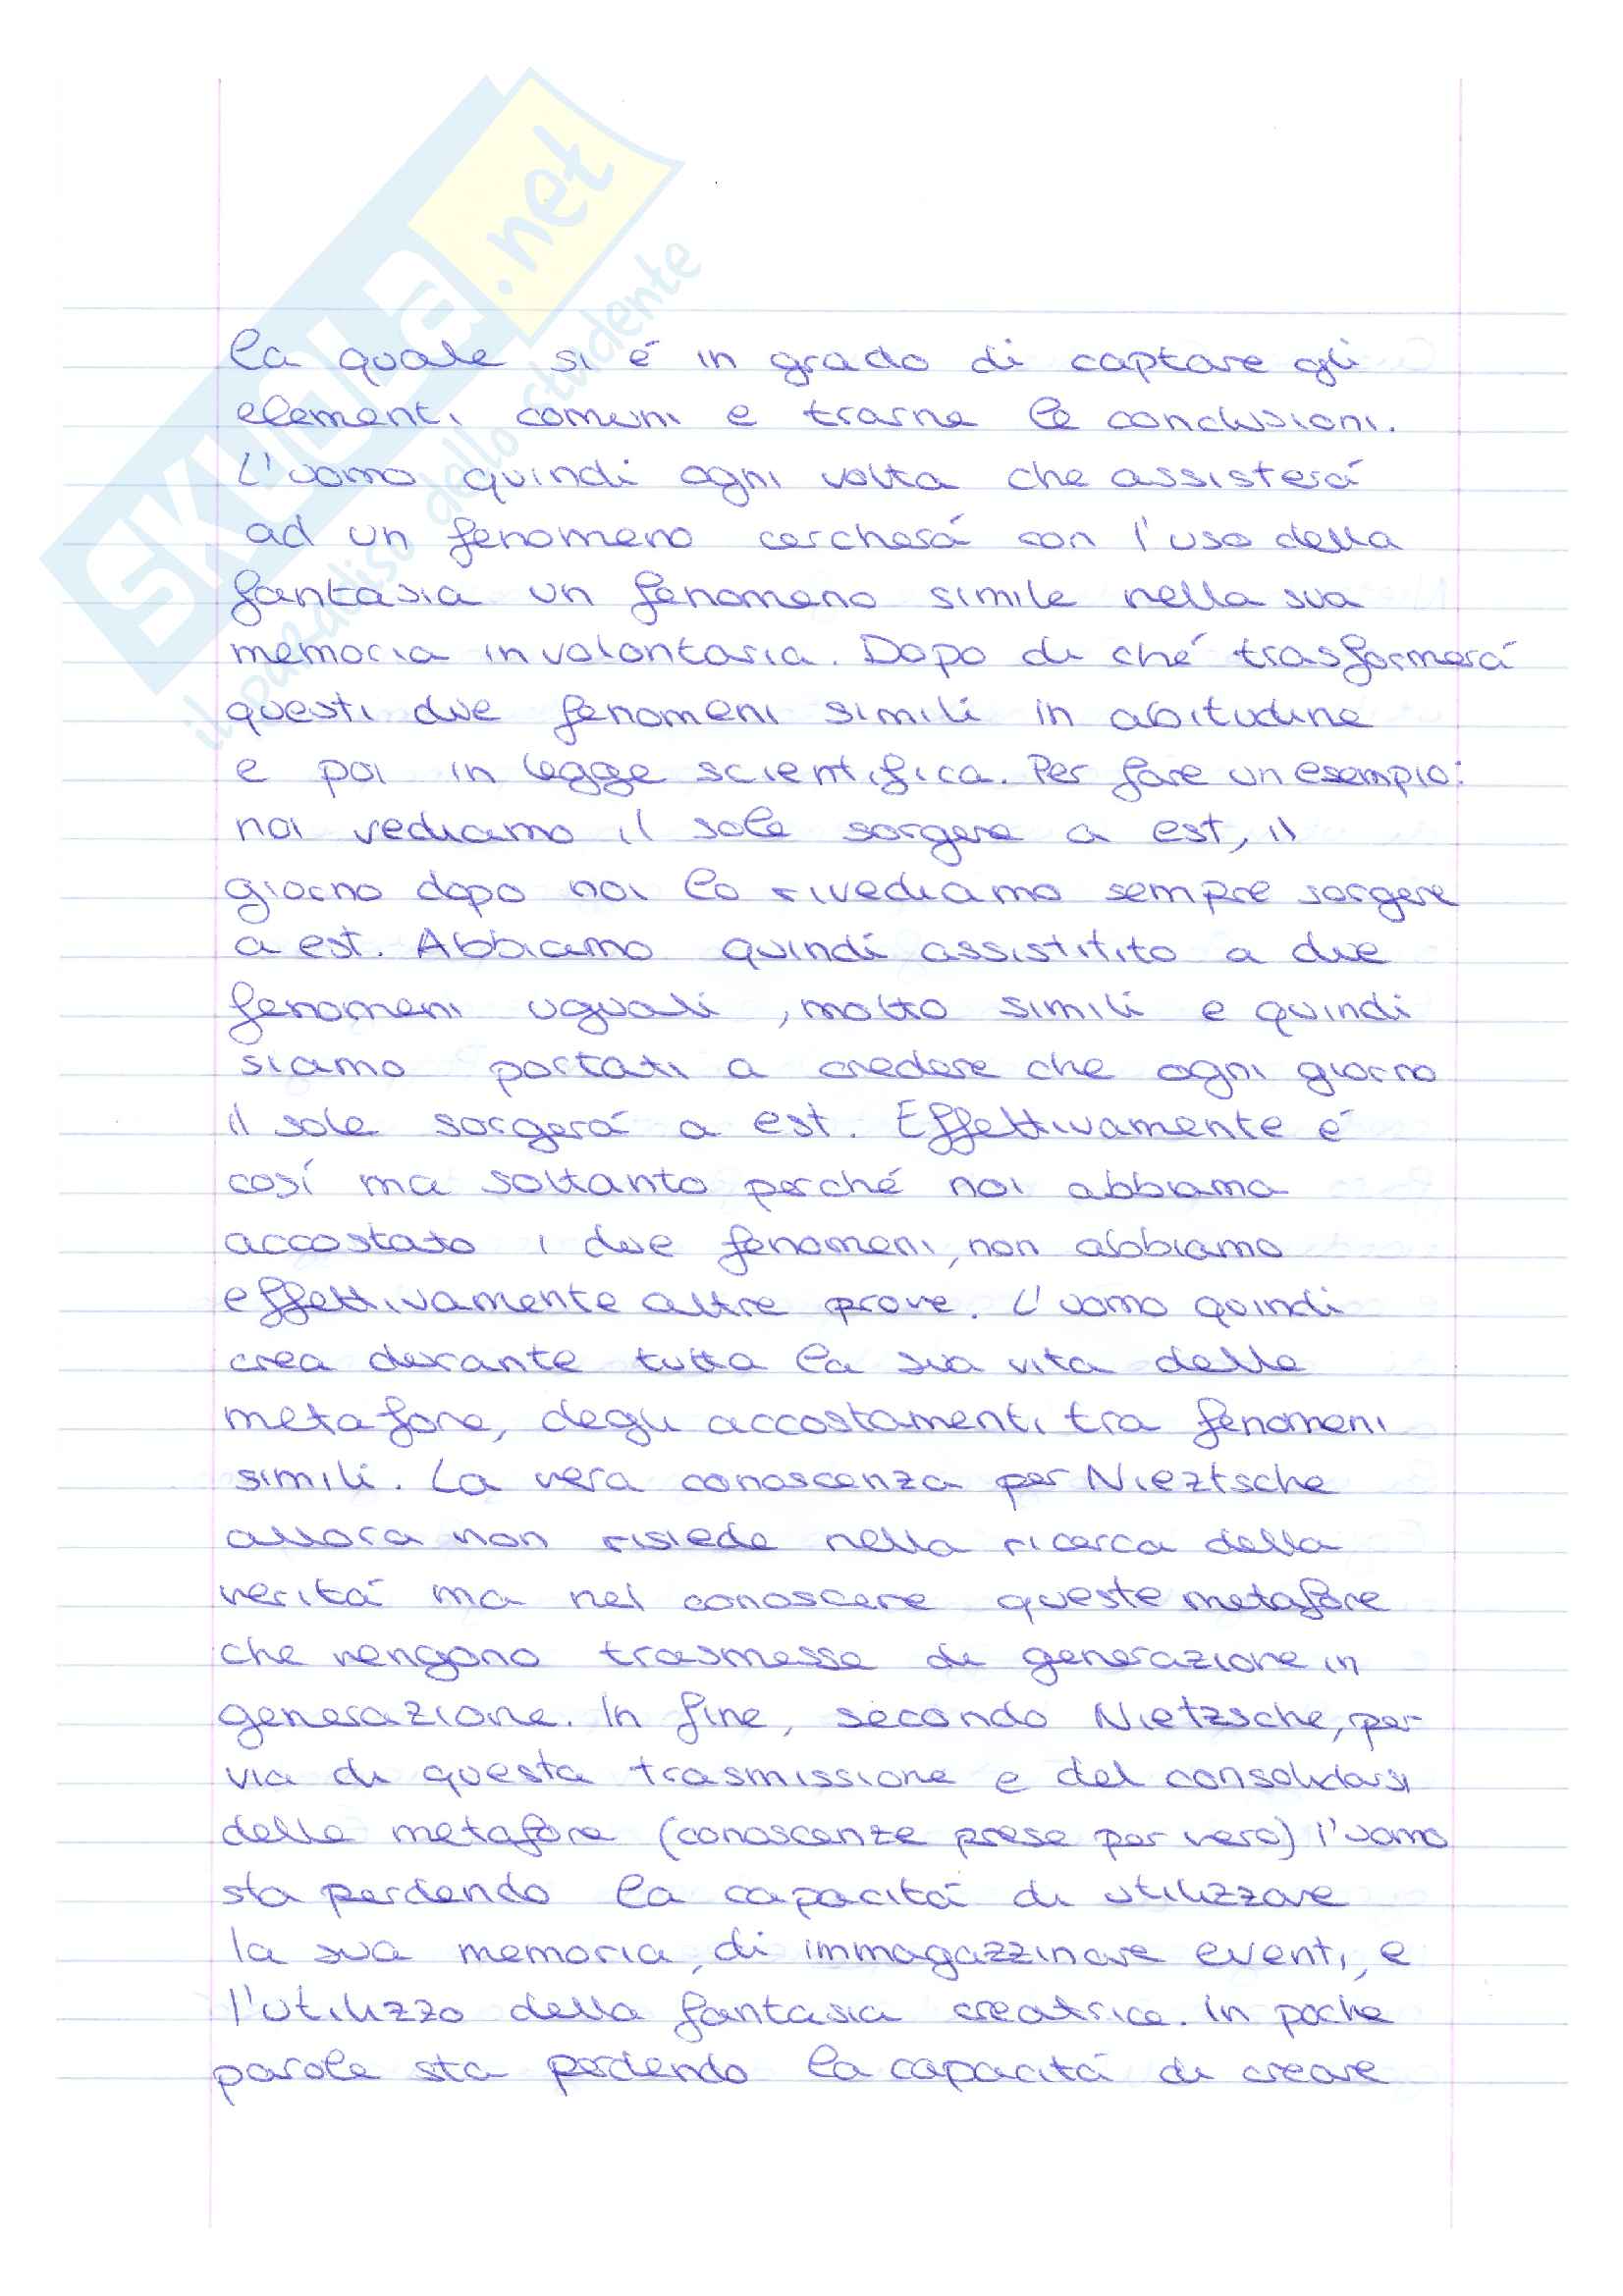 SKUOLA.net
il paradiso dello studente
la quale si é in grado di captare gli
elementi comuni e trarne le conclusioni.
L'uomo quindi ogni volta che assisterá
ad un fenomeno cercherá con l'uso della
fantasia un fenomeno simile nella sua
memoria involontaria. Dopo di ché trasformerá
questi due fenomeni simili in abitudine
e poi in legge scientifica. Per fare un esempio:
noi vediamo il sole sorgere a est, il
giorno dopo noi lo rivediamo sempre sorgere
a est. Abbiamo quindi assistitito a due
fenomeni uguali, molto simili e quindi
siamo portati a credere che ogni giorno
il sole sorgerá a est. Effettivamente é
cosí ma soltanto perché noi abbiamo
accostato i due fenomeni, non abbiamo
effettivamente altre prove. L'uomo quindi
crea durante tutta la sua vita delle
metafore, degli accostamenti tra fenomeni
simili. La vera conoscenza per Nieztsche
allora non risiede nella ricerca della
veritá ma nel conoscere queste metafore
che vengono trasmesse di generazione in
generazione. In fine, secondo Nietzsche, per
via di questa trasmissione e del consolidarsi
delle metafore (conoscenze prese per vere) l'uomo
sta perdendo la capacitá di utilizzare
la sua memoria, di immagazzinare eventi, e
l'utilizzo della fantasia creatrice. In poche
parole sta perdendo la capacitá di creare